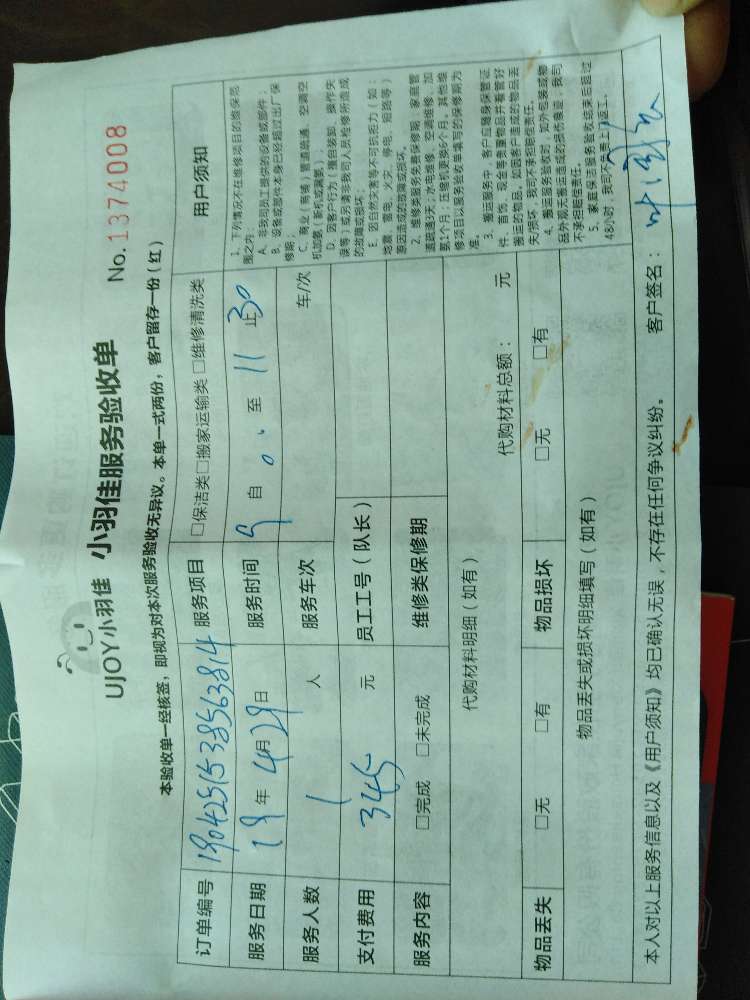 UJOY小羽佳 小羽佳服务验收单 No.1374008
本验收单一经核签，即视为对本次服务验收无异议。本单一式两份，客户留存一份（红）
订单编号 1904251538563814 服务项目 □保洁类□搬家运输类□维修清洗类 用户须知
服务日期 19年4月29日 服务时间 9 自 0 、 至 11 止30
服务人数 1 人 服务车次 车/次
支付费用 345 元 员工工号（队长）
服务内容 □完成 □未完成 维修类保修期
代购材料明细（如有） 代购材料总额： 元
物品丢失 □无 □有 物品损坏 □无 □有
物品丢失或损坏明细填写（如有）
1、下列情况不在维修项目的维保范
围之内：
A、非我司员工提供的设备或部件；
B、设备或部件本身已经超过出厂保
修期；
C、商业（商铺）管道疏通、空调空
机加氨（新机或漏氨）；
D、因客户行为（擅自装卸、操作失
误等）或另请非我司人员检修所造成
的故障或损坏；
E、因自然灾害等不可抗拒力（如：
地震、雷电、火灾、停电、短路等）
原因造成的故障或损坏。
2、维修类服务免费保修期：家庭管
道疏通3天；水电维修、空调维修、加
氨1个月；压缩机更换6个月。其他维
修项目以服务验收单填写的保修期为
准。
3、搬迁服务中，客户应随身保管证
件、首饰、现金等贵重物品并看管好
搬运的物品，如是客户造成的物品丢
失/损坏，我司不承担赔偿责任。
4、搬运服务验收时，如外包装或物
品外观无搬运造成的损伤痕迹，我司
不承担赔偿责任。
5、家庭保洁服务验收结束后超过
48小时，我司不负责上门返工。
本人对以上服务信息以及《用户须知》均已确认无误，不存在任何争议纠纷。 客户签名：